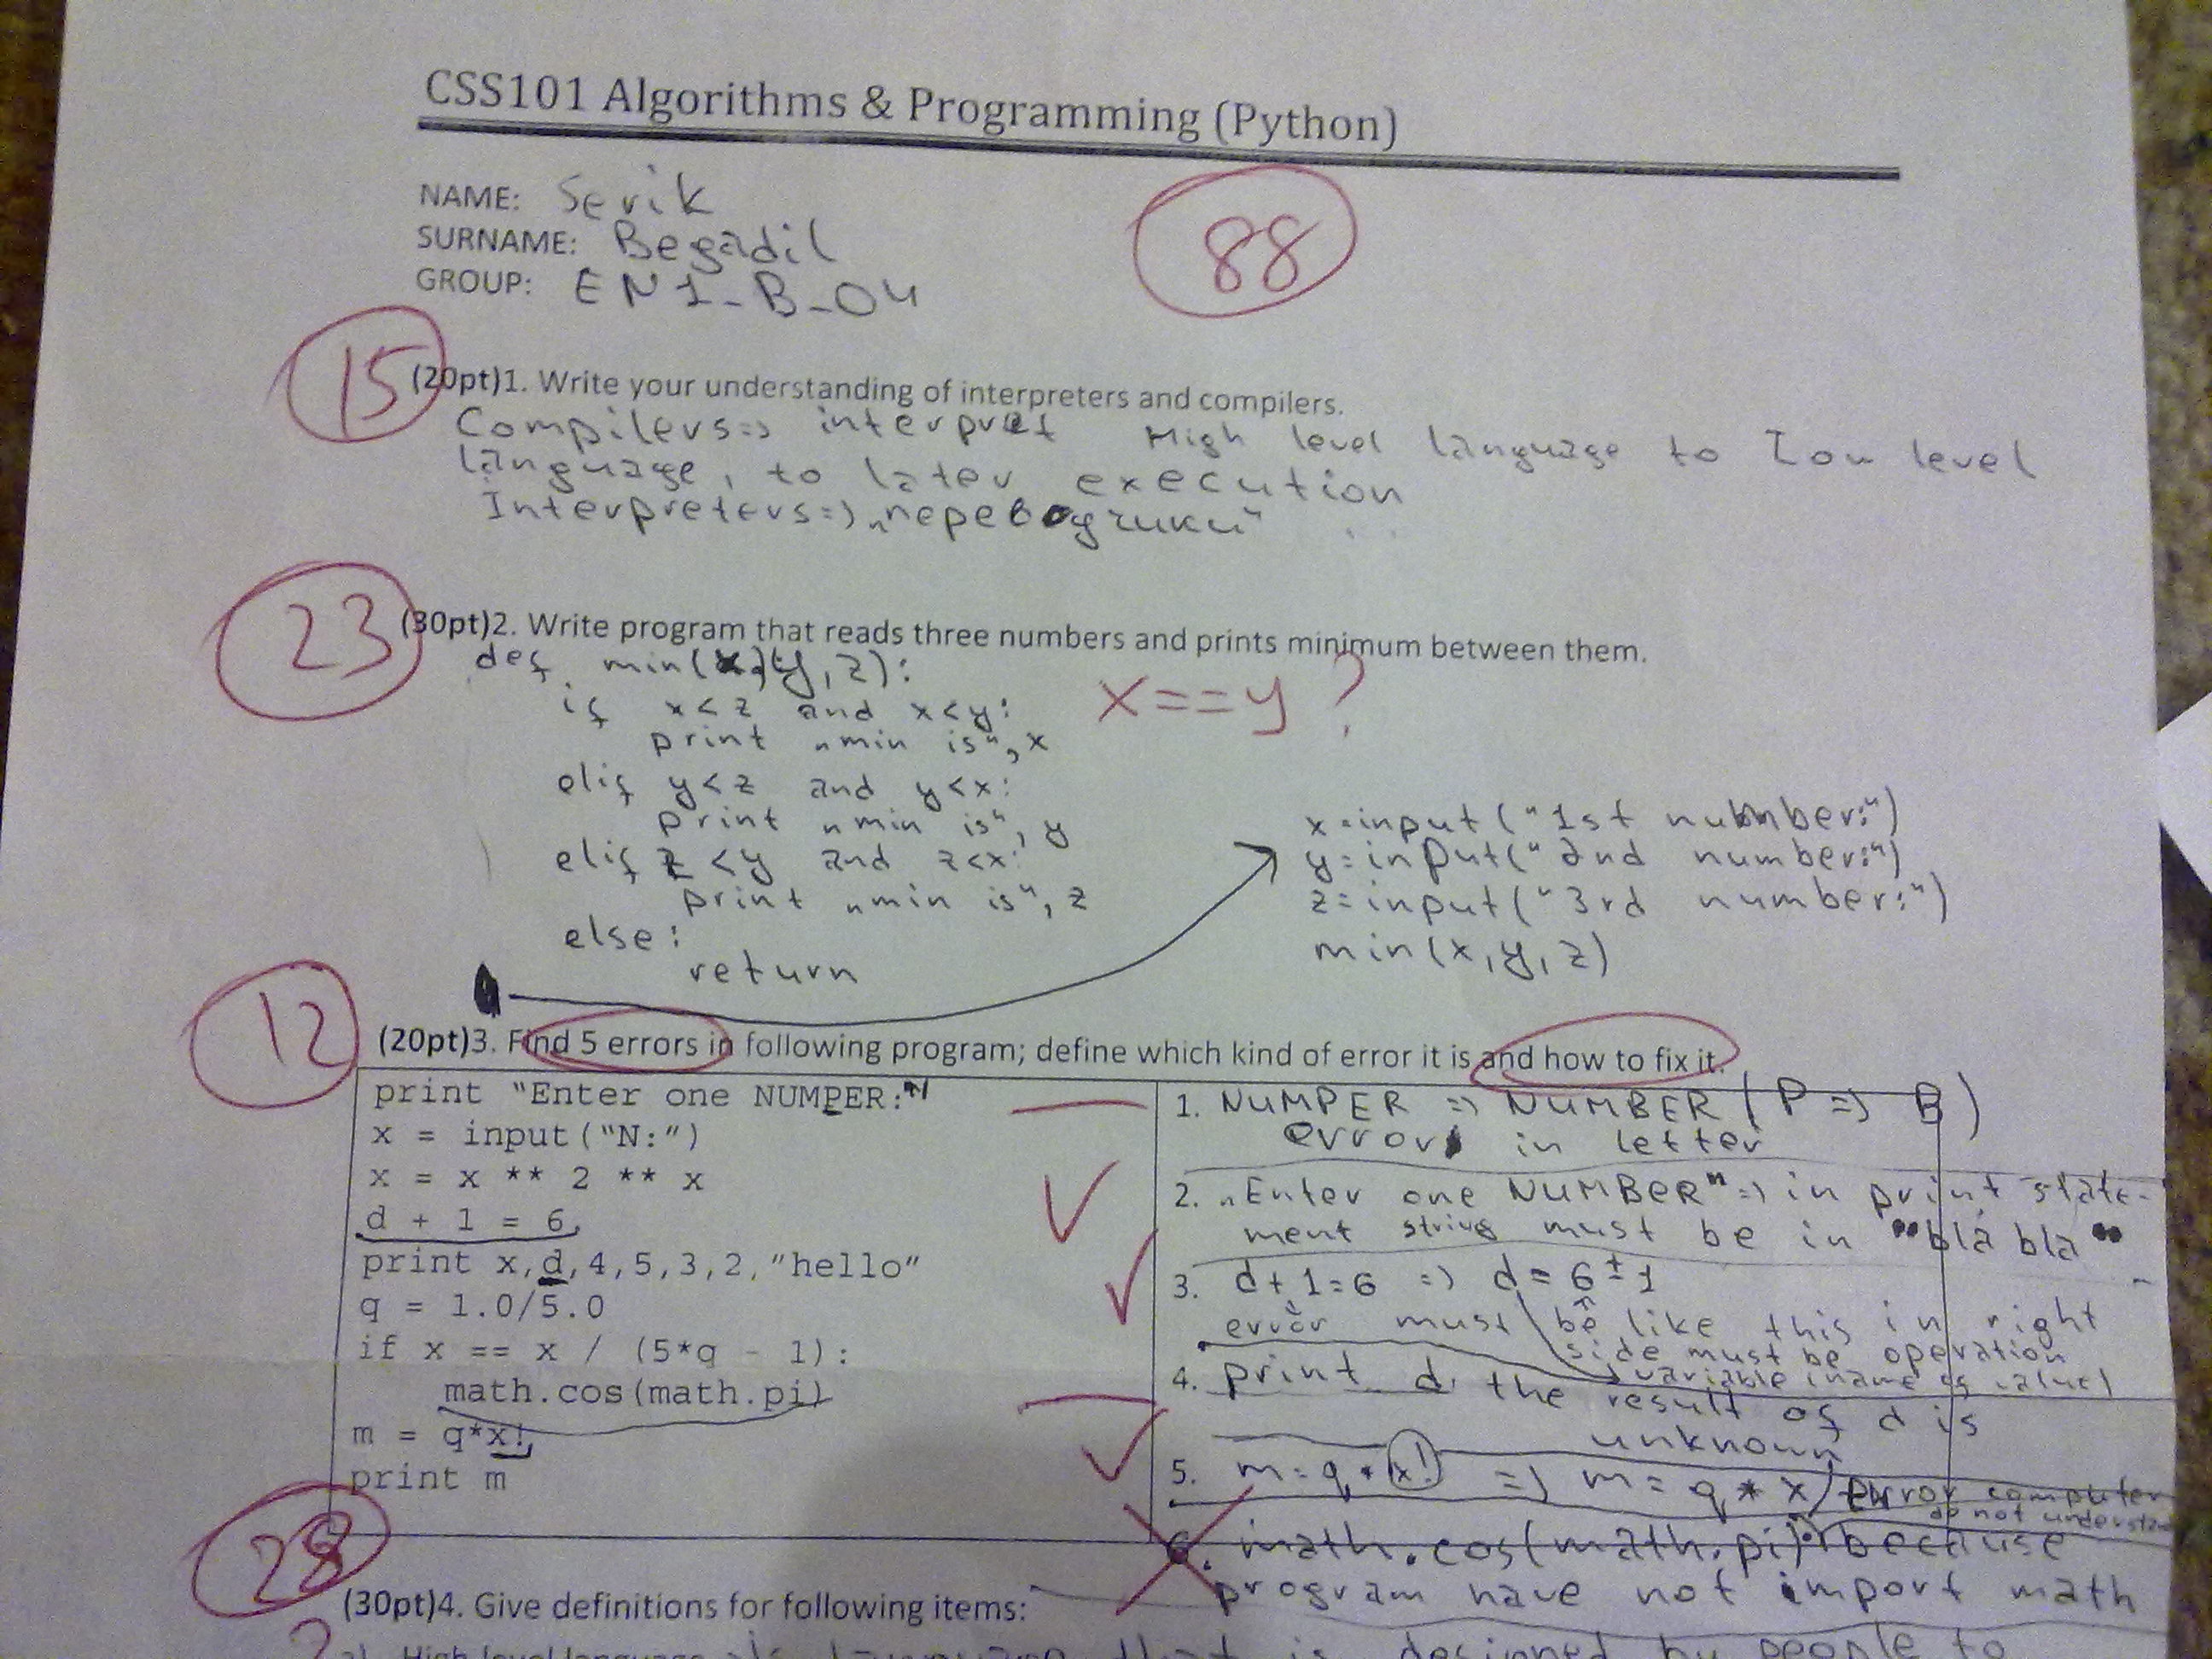 CSS101 Algorithms & Programming (Python)
NAME: Serik
SURNAME: Begadil
GROUP: EN1_B_04
88
15
(20pt)1. Write your understanding of interpreters and compilers.
Compilers=> interpret High level language to Low level
language, to later execution
Interpreters=> „переводчики"
23
(30pt)2. Write program that reads three numbers and prints minimum between them.
def min(x,y,z):
if x<z and x<y:
x==y?
print „min is", x
elif y<z and y<x:
print „min is", y
elif z<y and z<x:
print „min is", z
else:
return
x=input("1st number:")
y=input("2nd number:")
z=input("3rd number:")
min(x,y,z)
12
(20pt)3. Find 5 errors in following program; define which kind of error it is and how to fix it.
print "Enter one NUMPER:"
x = input("N:")
x = x ** 2 ** x
d + 1 = 6
print x,d,4,5,3,2,"hello"
q = 1.0/5.0
if x == x / (5*q - 1):
math.cos(math.pi)
m = q*x!
print m
1. NUMPER => NUMBER (P => B)
error in letter
2. „Enter one NUMBER" => in print state-
ment string must be in "bla bla"
3. d+1=6 => d=6±1
error must be like this in right
side must be operation
variable (name of value)
4. print d the result of d is
unknown
5. m=q*x! => m=q*x error computer
do not understand
6. math.cos(math.pi) because
program have not import math
28
(30pt)4. Give definitions for following items:
a) High level language is language that is designed by people to